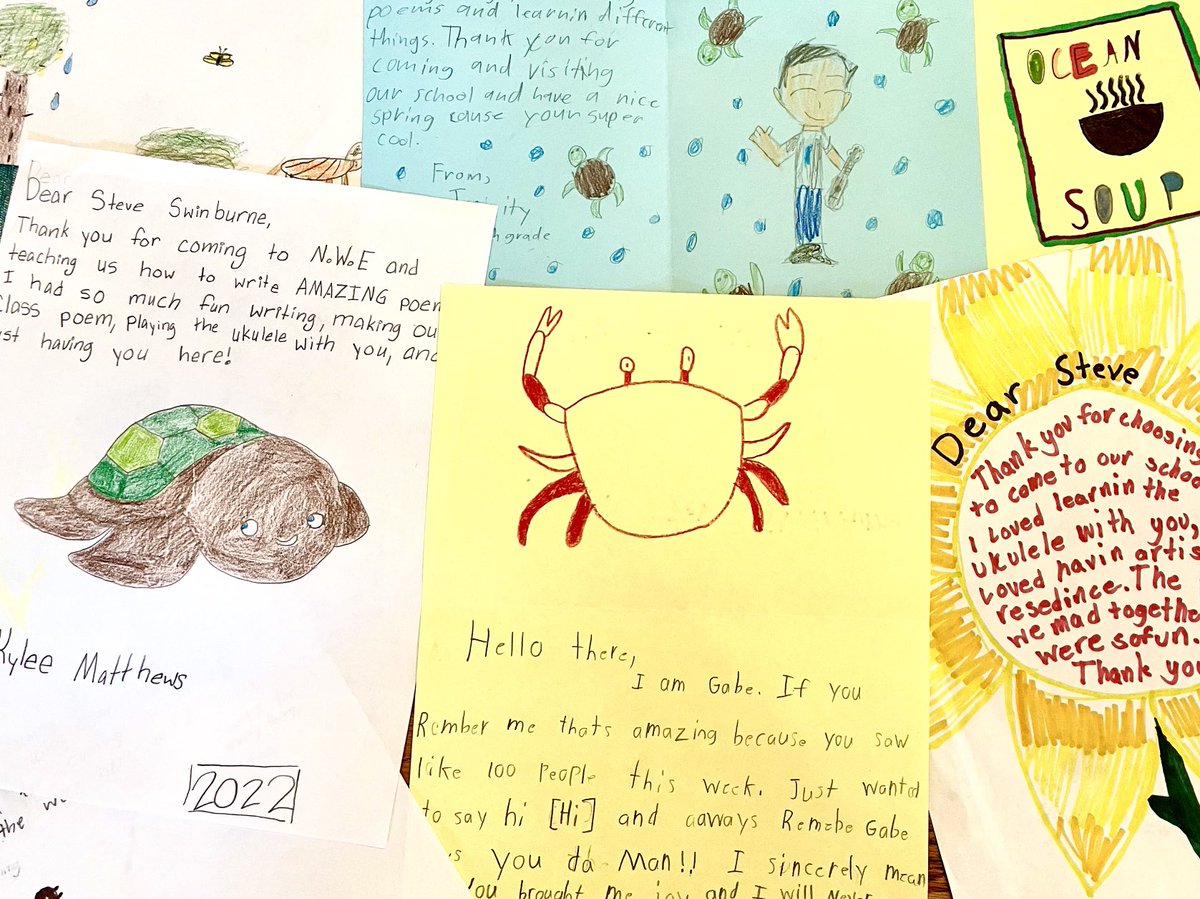 poems and learnin different
things. Thank you for
coming and visiting
our school and have a nice
spring cause your super
cool.
From,
grade
OCEAN
SOUP
Dear Steve Swinburne,
Thank you for coming to N.W.E and
teaching us how to write AMAZING poem
I had so much fun writing, making ou
class poem, playing the ukulele with you, and
st having you here!
Kylee Matthews
2022
Hello there,
I am Gabe. If you
Rember me thats amazing because you saw
like 100 people this week. Just wanted
to say hi [Hi] and aaways Remebe Gabe
s you da Man!! I sincerely mean
you brought me joy and I will Never
Dear Steve
Thank you for choosing
to come to our school
I loved learnin the
ukulele with you,
Loved havin artis
resedince. The
we mad together
were so fun.
Thank you
the